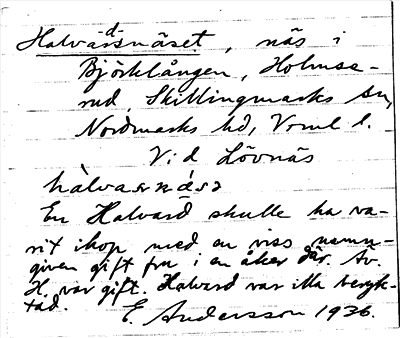 Halvardsnäset, näs i
Björklången, Holmse-
rud, Skillingmarks sn,
Nordmarks hd, Vrml l.
V: d Lövnäs
hàlvasnä́sə
En Halvard skulle ha va-
rit ihop med en viss namn-
given gift fru i en åker där. Äv.
H. var gift. Halvard var illa beryk-
tad.
E. Andersson 1936.